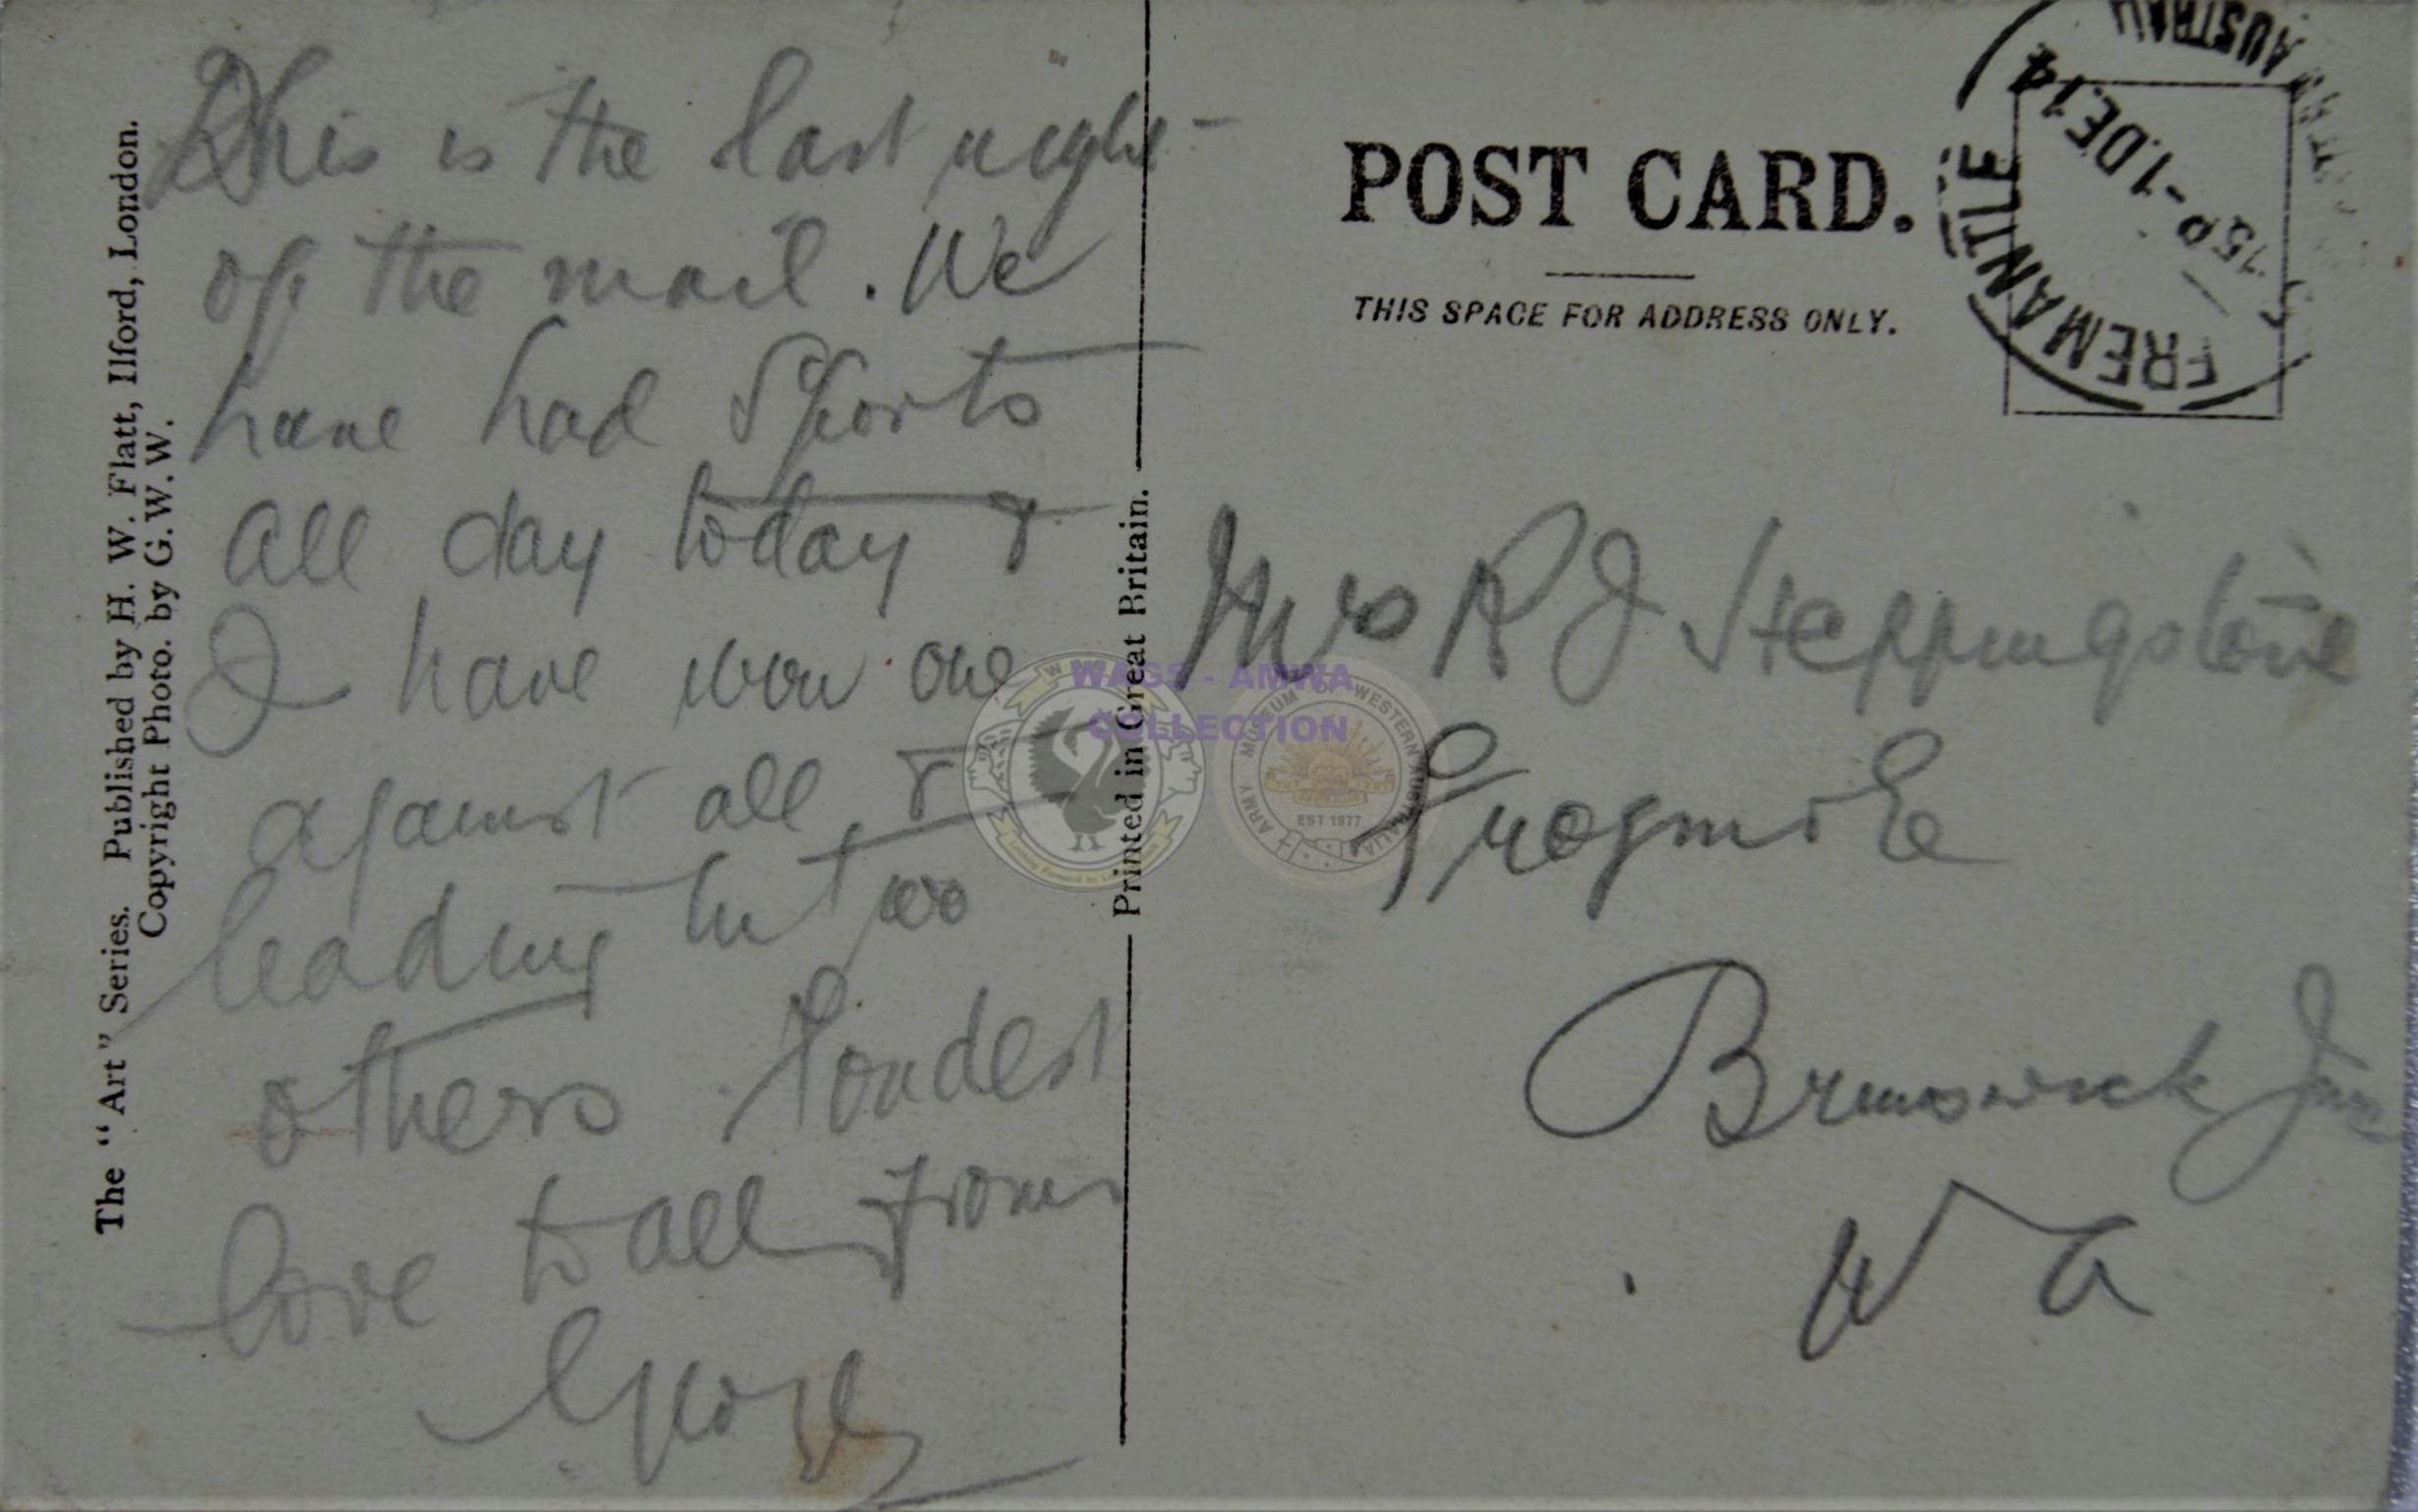 The "Art" Series. Published by H. W. Flatt, Ilford, London.
Copyright Photo. by G. W. W.
This is the last night
of the mail. We
have had Sports
all day today &
I have won one
against all &
leading in two
others fondest
love to all from
George
Printed in Great Britain.
POST CARD.
THIS SPACE FOR ADDRESS ONLY.
FREMANTLE
15P-1.DE.14
AUSTRALI
Mrs R J Steppingstone
Frogmore
Brunswick Junc
W A
WAGS - AMWA
COLLECTION
ARMY MUSEUM OF WESTERN AUSTRALIA
EST 1977